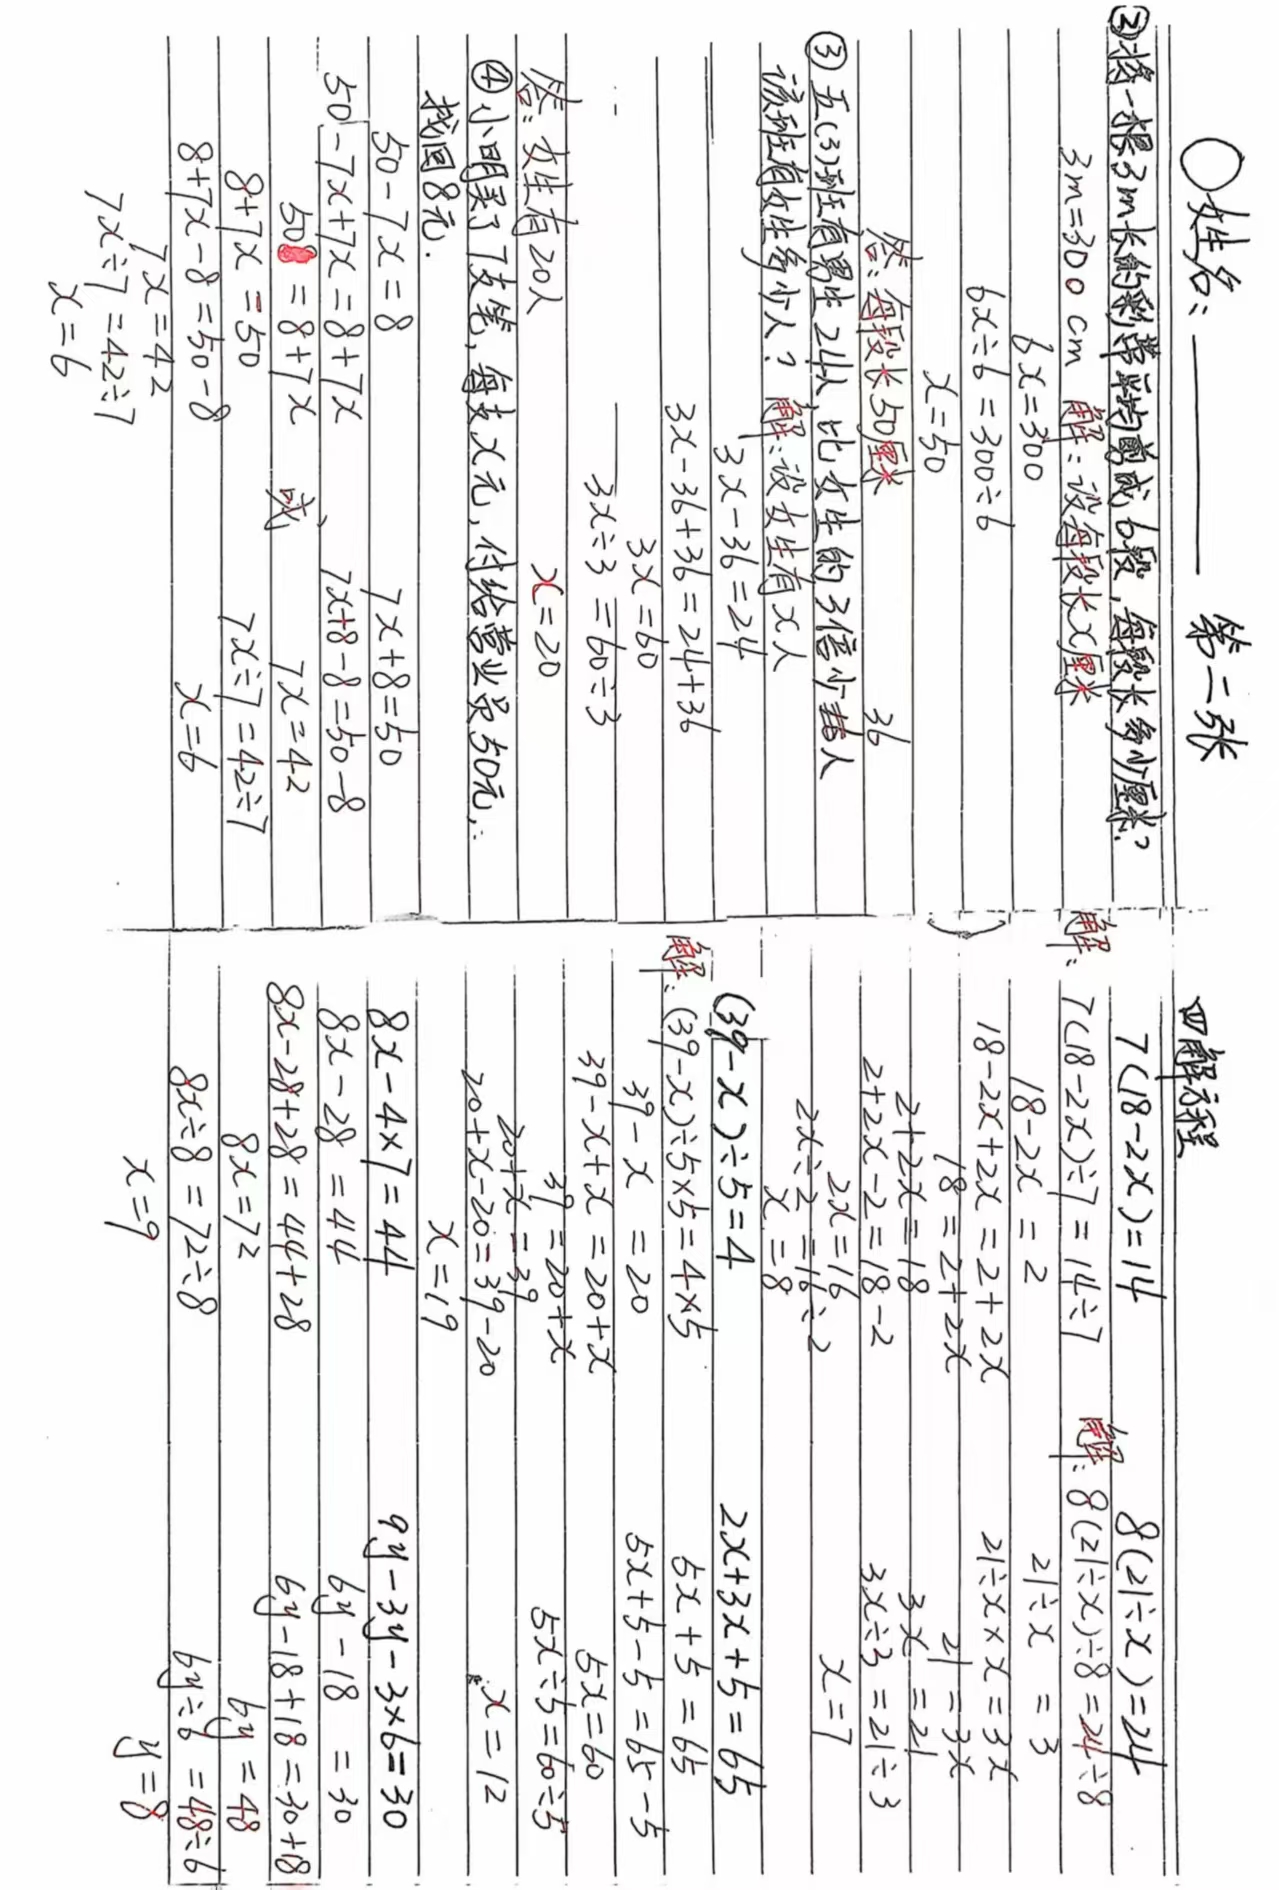 ○姓名：________ 第二张
②将一根3m长的彩带平均剪成6段，每段长多少厘米？
3m=300cm 解：设每段长x厘米
6x=300
6x÷6=300÷6
x=50
答：每段长50厘米
36
③五(3)班有男生24人，比女生的3倍少人
该班有女生多少人？ 解：设女生有x人
3x-36=24
3x-36+36=24+36
3x=60
3x÷3=60÷3
答：女生有20人 x=20
④小明买了7支笔，每支x元，付给营业员50元，
找回8元.
50-7x=8
50-7x+7x=8+7x
50=8+7x
8+7x=50
8+7x-8=50-8
7x=42
7x÷7=42÷7
x=6
或
7x+8=50
7x+8-8=50-8
7x=42
7x÷7=42÷7
x=6
四解方程
7(18-2x)=14
解：7(18-2x)÷7=14÷7
18-2x=2
18-2x+2x=2+2x
18=2+2x
2+2x=18
2+2x-2=18-2
2x=16
2x÷2=16÷2
x=8
8(21÷x)=24
解：8(21÷x)÷8=24÷8
21÷x=3
21÷x×x=3x
21=3x
3x=21
3x÷3=21÷3
x=7
(39-x)÷5=4
解：(39-x)÷5×5=4×5
39-x=20
39-x+x=20+x
39=20+x
20+x=39
20+x-20=39-20
x=19
2x+3x+5=65
5x+5=65
5x+5-5=65-5
5x=60
5x÷5=60÷5
x=12
8x-4×7=44
8x-28=44
8x-28+28=44+28
8x=72
8x÷8=72÷8
x=9
9y-3y-3×6=30
6y-18=30
6y-18+18=30+18
6y=48
6y÷6=48÷6
y=8